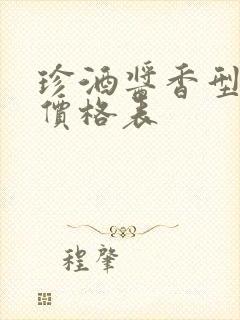 珍酒醬香型
價格表
程肇